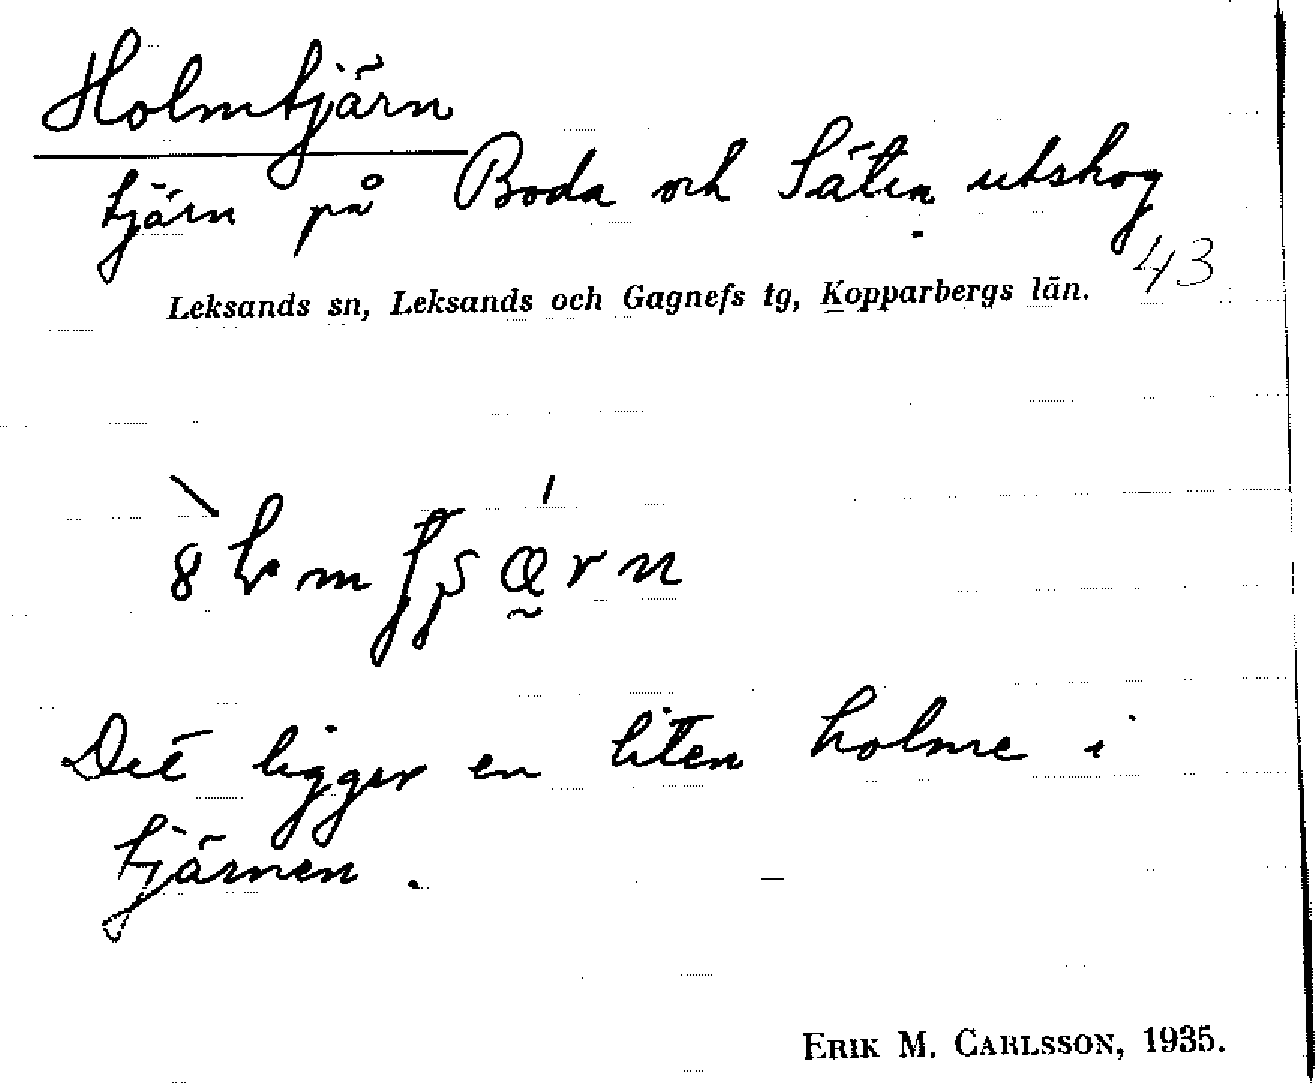 Holmtjärn
tjärn på Boda och Sätra utskog
43
Leksands sn, Leksands och Gagnefs tg, Kopparbergs län.
Det ligger en liten holme i
tjärnen.
ERIK M. CARLSSON, 1935.